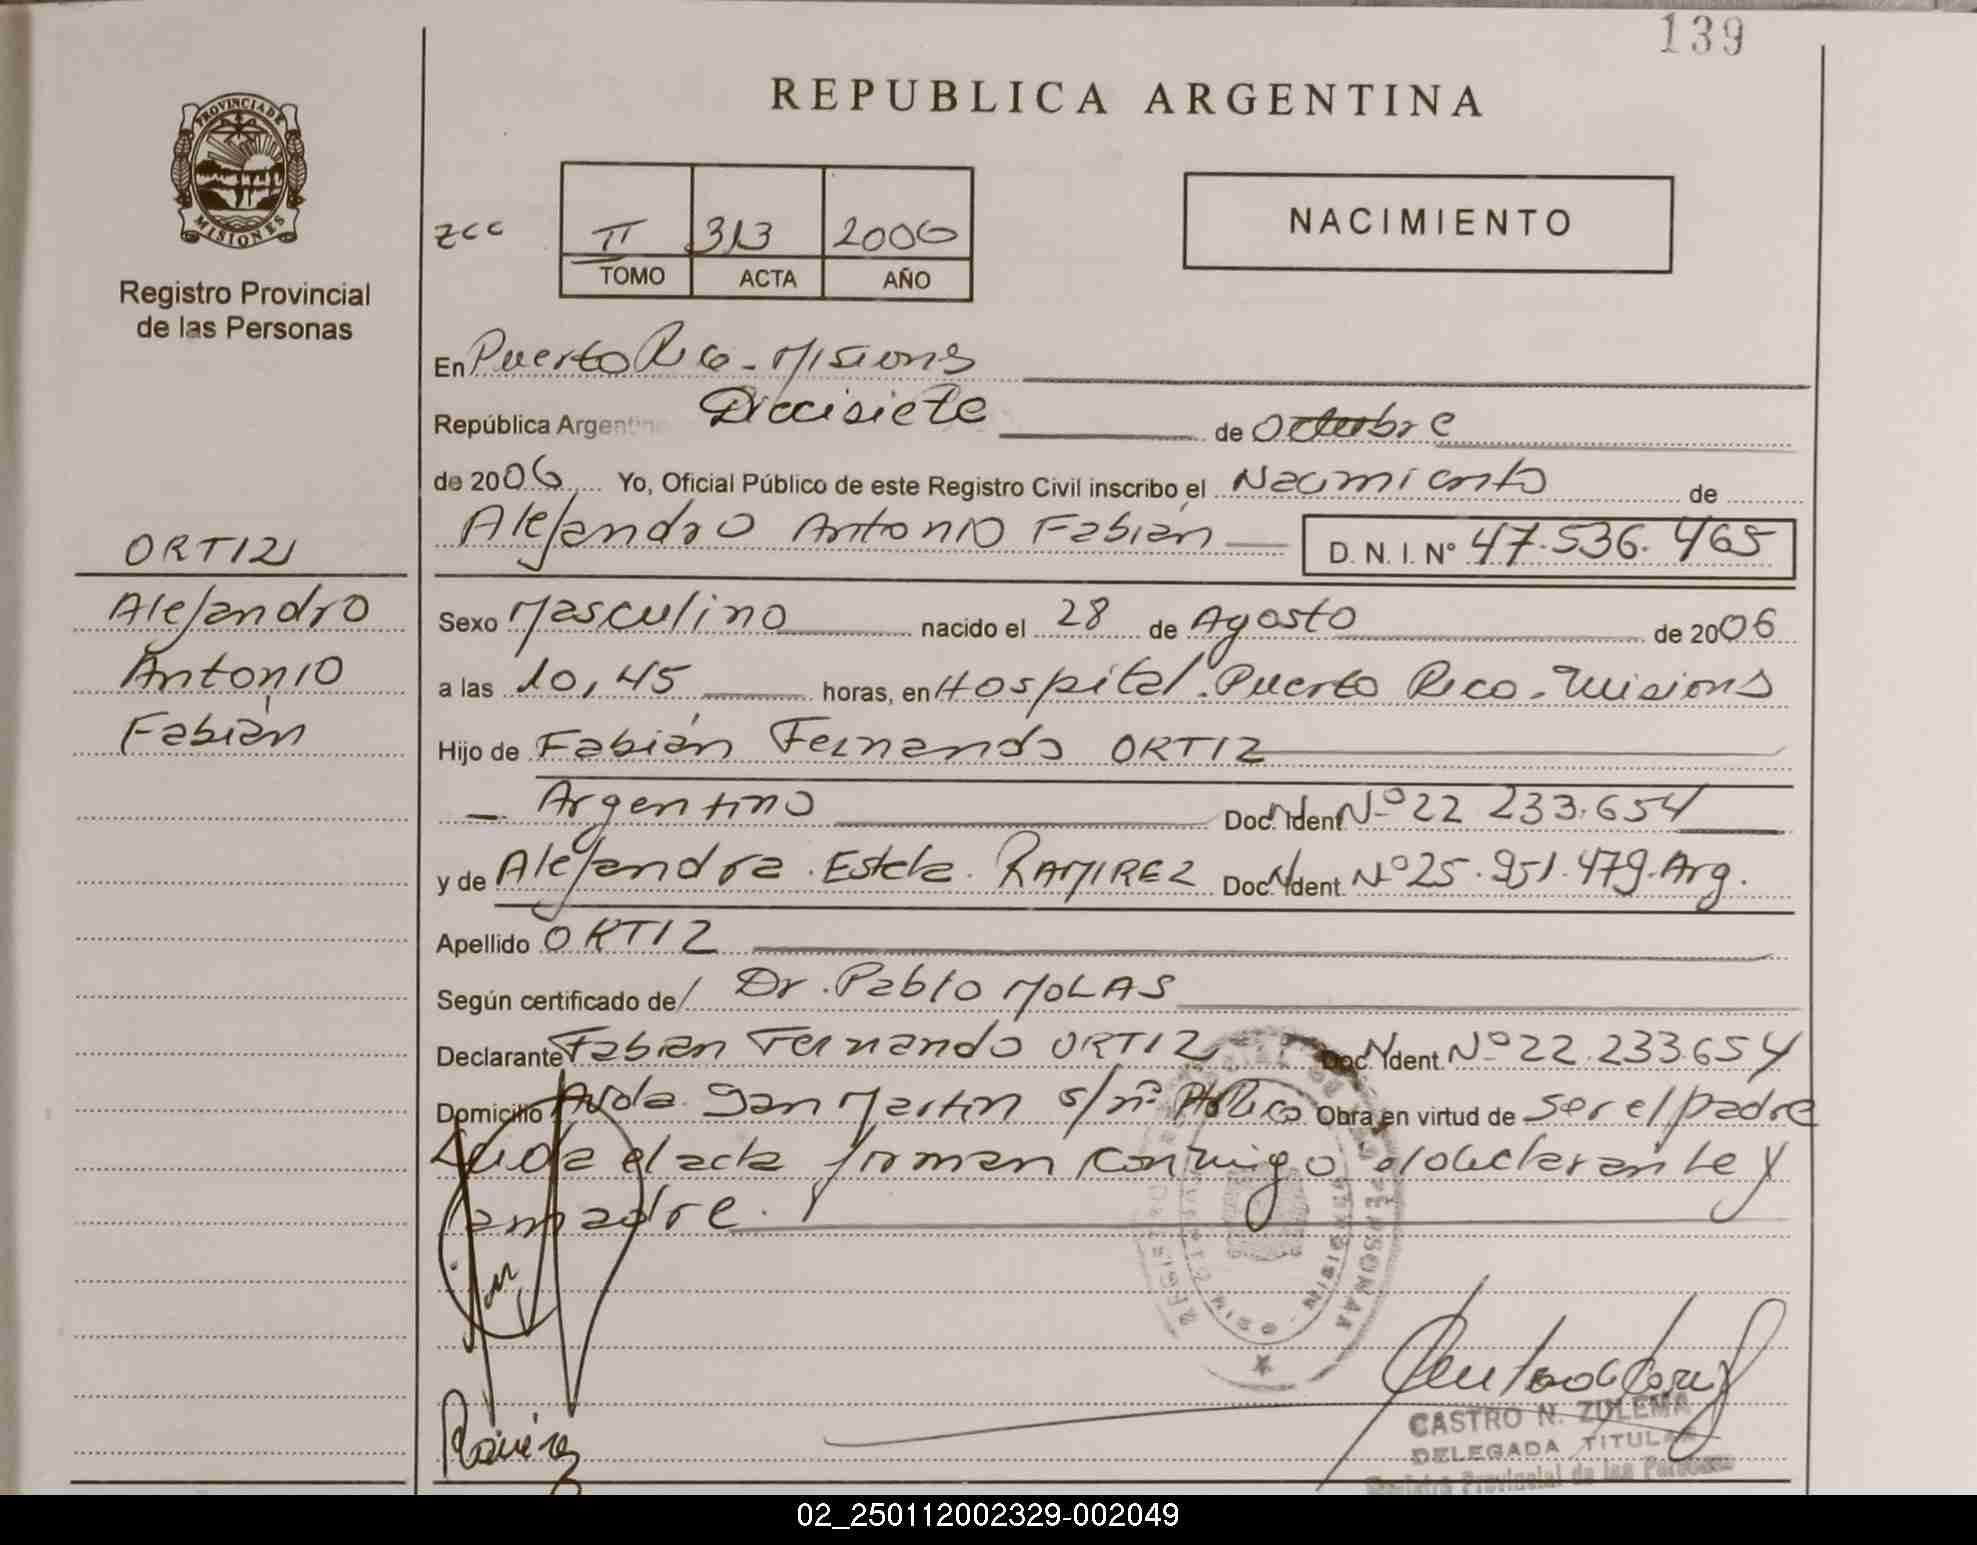 139
REPUBLICA ARGENTINA
PROVINCIA DE
MISIONES
Registro Provincial
de las Personas
zcc
II 313 2006
TOMO ACTA AÑO
NACIMIENTO
En Puerto Rico - Misions
República Argentina Diecisiete de Octubre
de 2006 Yo, Oficial Público de este Registro Civil inscribo el Nacimiento de
Alejandro Antonio Fabián D. N. I. Nº 47.536.465
ORTIZ
Alejandro
Antonio
Fabián
Sexo Masculino nacido el 28 de Agosto de 2006
a las 10,45 horas, en Hospital. Puerto Rico. Misions
Hijo de Fabián Fernando ORTIZ
- Argentino Doc. Ident. Nº 22 233.654
y de Alejandra Estela RAMIREZ Doc. Ident. Nº 25.951.479. Arg.
Apellido ORTIZ
Según certificado de/ Dr. Pablo MOLAS
Declarante Fabian Fernando ORTIZ Doc. Ident. Nº 22.233.654
Domicilio Avda. San Martin s/nº Pto Rico Obra en virtud de ser el padre
Leida el acta firman conmigo el declarante y
la madre.
Ramirez
CASTRO N. ZULEMA
DELEGADA TITULAR
Registro Provincial de las Personas
02_250112002329-002049